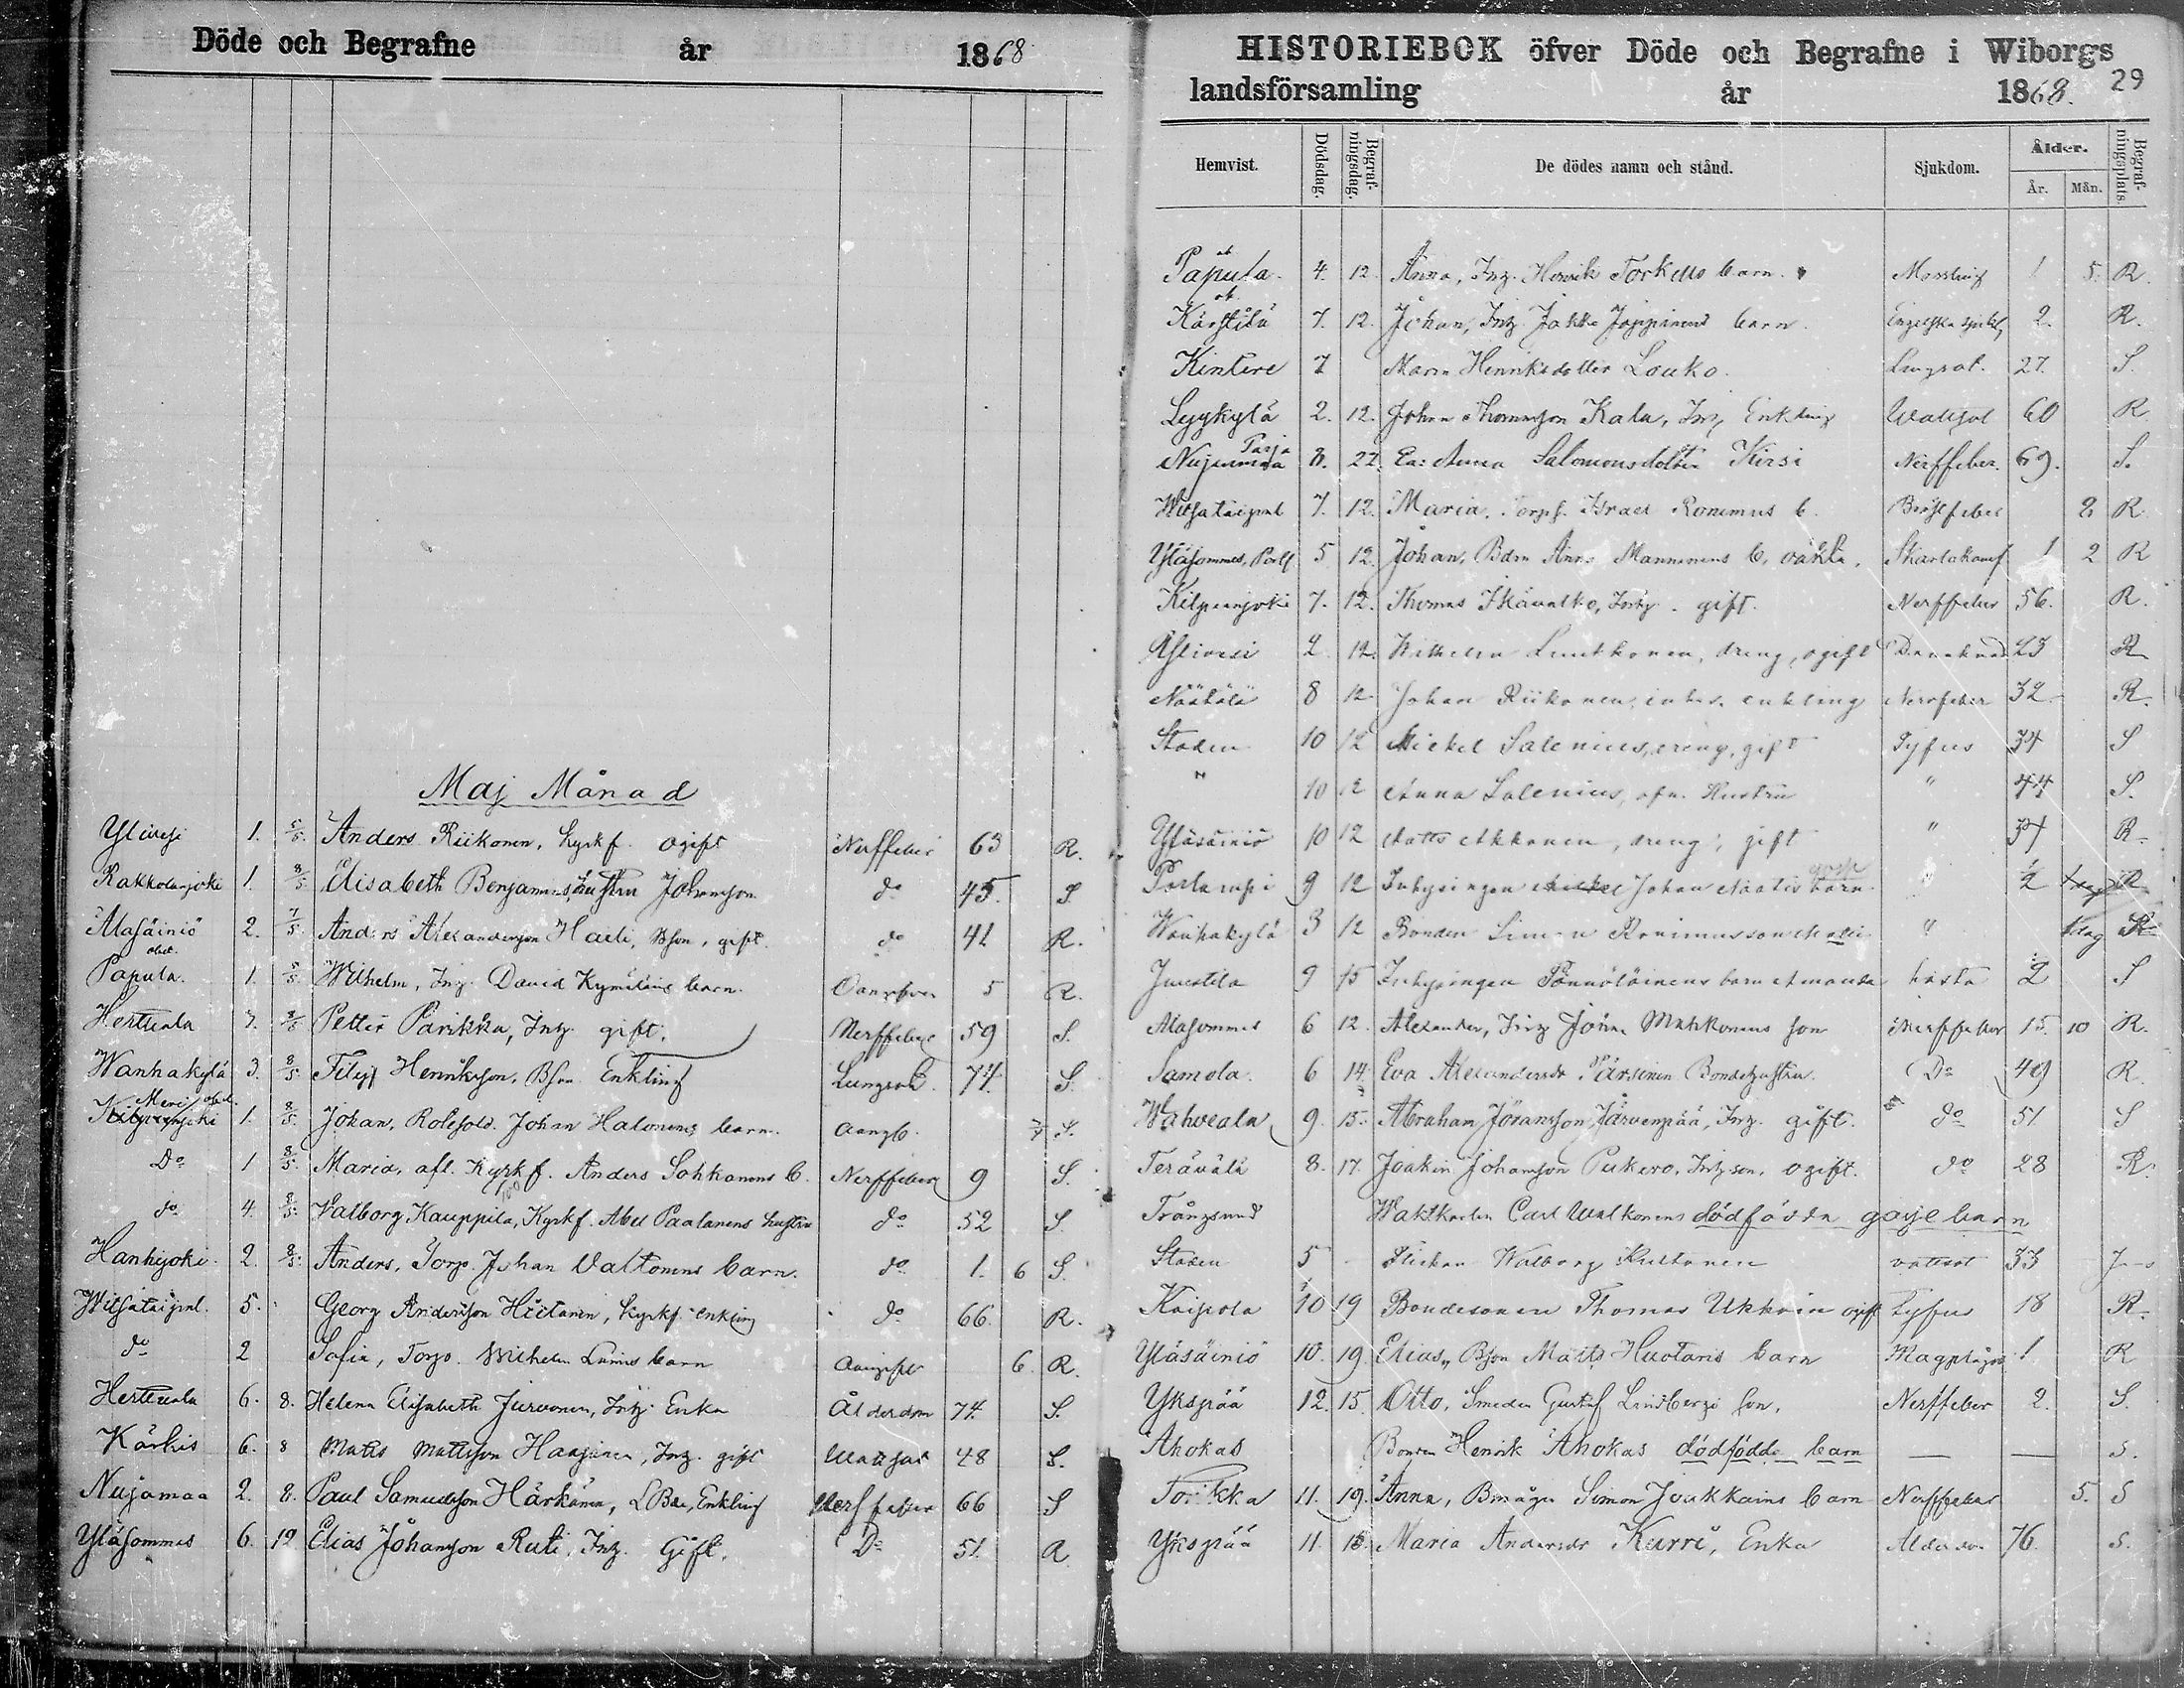 Döde och Begrafne år 1868
Maj Månad
Yliwesi 1. 8/5. Anders Riikonen, kyrkf. ogift Nerffeber 63 R.
Rakkolanjoki 1. 8/5 Elisabeth Benjamins hustru Johansson do 45. S.
Alasäiniö 2. 7/5. Anders Alexandersson Harti, Bson, gift. do 41 R.
Papula. 1. 8/5. Wilhelm, Inh. David Kymäläins barn. 5 R.
Herttuala 3. 8/5 Petter Parikka, Inh. gift. Nerffeber 59 S.
Wanhakylä 3. 8/5 Filip Henriksson, Bson Enkling Lungsot 74. S.
Kilpeenjoki 1. 8/5. Johan, Rotehold. Johan Halonens barn. S.
Do 1 8/5. Maria, afl. Kyrkf. Anders Sohkanens b. Nerffeber 9 S.
do 4. 8/5. Valborg Kauppila, Kyrkf. Abel Paalanens hustru do 52 S.
Hanhijoki. 2. 8/5. Anders, Torp. Johan Valtonens barn. do 1. 6 S.
Witsataipal. 5. Georg Andersson Hietanen, kyrkf. enkling do 66. R.
do 2 Sofia, Torp. Wilhelm barn 6. R.
Herttuala 6. 8. Helena Elisabeth Jurvonen, Inh. Enka Ålderdom 74. S.
Kärkis 6. 8 Matts Mattsson Haajanen, Inh. gift Wattsot 48 S.
Nuijamaa 2. 8. Paul Samuelsson Härkönen, LBde, Enkling Nerffeber 66 S
Yläsommes 6. 12 Elias Johansson Ruti, Inh. Gift. Do 51. R
HISTORIEBOK öfver Döde och Begrafne i Wiborgs
landsförsamling år 1868. 29
Hemvist. Dödsdag. Begrafningsdag. De dödes namn och stånd. Sjukdom. Ålder. År. Mån. Begrafningsplats.
Papula. 4. 12. Anna, Inh. Henrik Torkels barn. Messling 1 5. R.
Kärstilä 7. 12. Johan, Inh. Jakka Joppinens barn. Engelska sjukd. 2. R.
Kintere 7 Maria Henriksdotter Louko. Lungsot. 27. S.
Lyykylä 2. 12. Johan Thomasson Kala, Inh. Enkling Wattsot 60 R
Nujamaa 8. 22. Ea: Anna Salomonsdotter Kirsi Nerffeber. 69. S.
Witsataipal 7. 12. Maria, Torpf. Israel Ronimus b. Bröstfeber 2 R.
Yläsommes, 5 12. Johan, Bdrn Anna Manninens b. oäkta. Skarlakansf 1 2 R
Kilpeenjoki 7. 12. Thomas Ikävalko, Inh. gift. Nerffeber 56. R.
Yliwesi 2. 12. Wilhelm Luukkonen, dreng, ogift 23 R
Näätälä 8 12 Johan Riikonen, inhs. enkling Nervfeber 32 R.
Staden 10 12 Mickel Salenius, dreng, gift Tyfus 34 S
" 10 12 Anna Salenius, ofn. Hustru " 44 S.
Yläsäiniö 10 12 Matts Akkanen, dreng, gift " 34 R
Portlampi 9 12 Inhysingen Johan barn gosse " ½ R
Wanhakylä 3 12 Bonden Simon Ronimusson " 1 dag R
Juustila 9 15 Inhysingen barn Amanda hosta 2 S
Alasommes 6 12. Alexander, Inh. Johan Mahkonens son Nerffeber 15. 10 R.
Samola. 6 14. Eva Alexandersdr Pärsinen Bondehustru. Do 49 R.
Wahveala 9. 15. Abraham Jöransson Järvenpää, Inh. gift. do 51 S
Terävälä 8. 17. Joakim Johansson Pukero, Inh. son, ogift. do 28 R.
Trångsund Waktkarlen Carl Walkonens dödfödda gosse barn
Staden 5 Flickan Walborg Kultanen vattsot 33
Kaipola 10 19 Bondesonen Thomas Ukkoin ogift tyfus 18 R
Yläsäiniö 10. 19. Elias, Bson Matts Huotaris barn Magplågor 1 R
Ykspää 12. 15. Otto, Smeden Gustaf Lindbergs son. Nerffeber 2. S.
Ahokas Bonden Henrik Ahokas dödfödda barn — — S.
Torikka 11. 19. Anna, Bmågen Simon Joukkains barn Nerffeber 5. S
Ykspää 11. 15. Maria Andersdr Kurri, Enka Ålderdom 76. S.